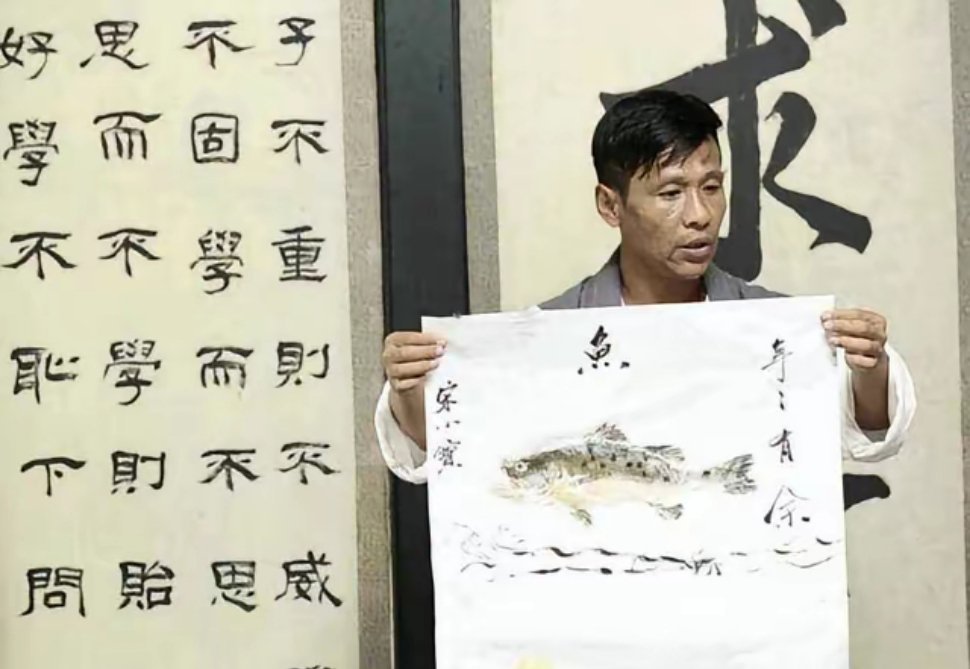 子不重則不威
不固學而不思
思而不學則貽
好學不恥下問
魚
年々有余
宋小寶